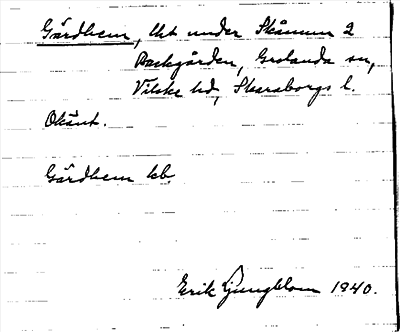 Gärdhem, lht under Skånum 2
Backgården, Grolanda sn,
Vilske hd, Skaraborgs l.
Okänt.
Gärdhem kb
Erik Ljungblom 1940.